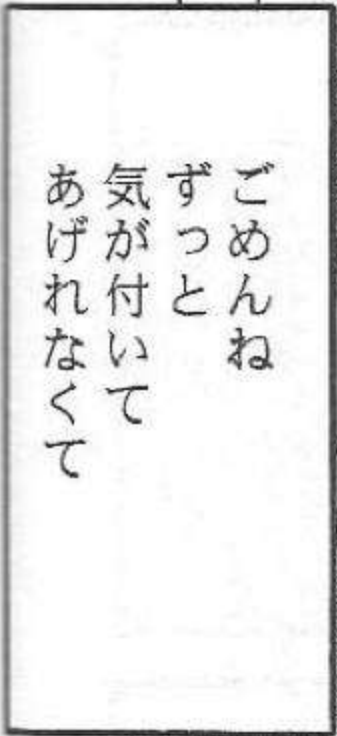 ごめんね
ずっと
気が付いて
あげれなくて